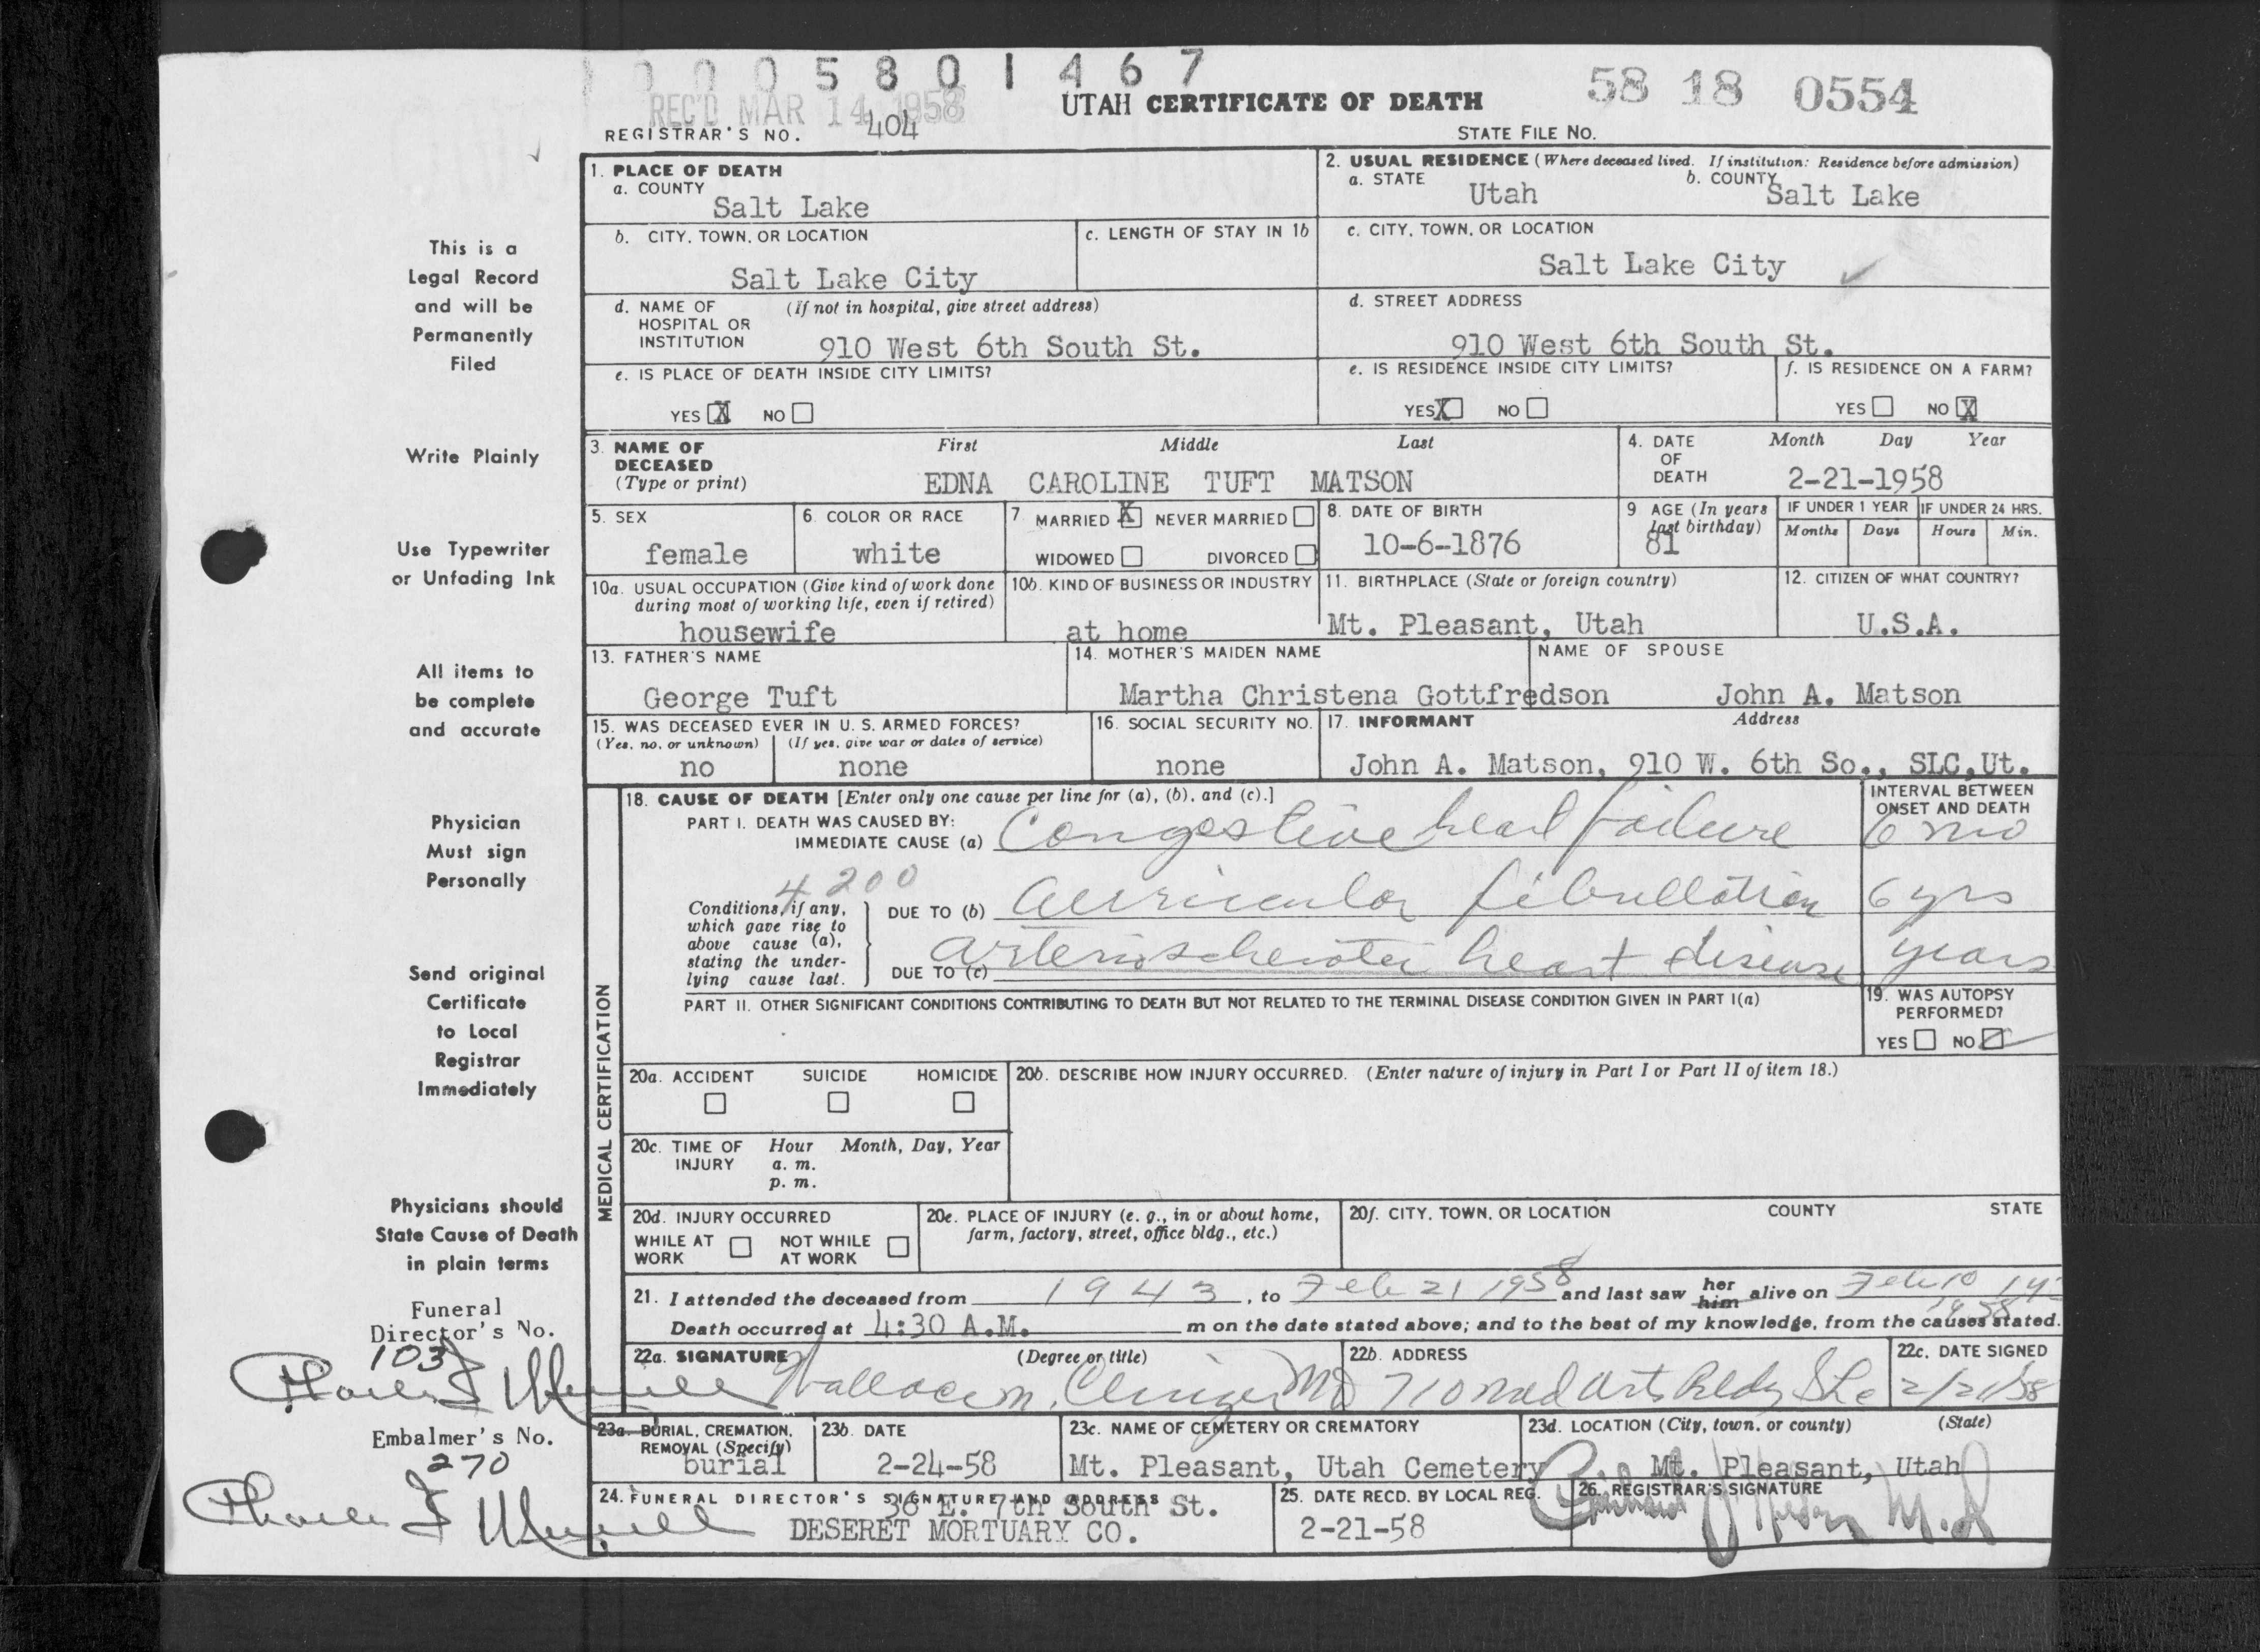 0 0 0 5 8 0 1 4 6 7
REC'D MAR 14 1958
UTAH CERTIFICATE OF DEATH
58 18 0554
REGISTRAR'S NO. 404
STATE FILE NO.
1. PLACE OF DEATH
a. COUNTY
Salt Lake
2. USUAL RESIDENCE (Where deceased lived. If institution: Residence before admission)
a. STATE Utah
b. COUNTY Salt Lake
b. CITY, TOWN, OR LOCATION
Salt Lake City
c. LENGTH OF STAY IN 1b
c. CITY, TOWN, OR LOCATION
Salt Lake City
d. NAME OF HOSPITAL OR INSTITUTION (If not in hospital, give street address)
910 West 6th South St.
d. STREET ADDRESS
910 West 6th South St.
e. IS PLACE OF DEATH INSIDE CITY LIMITS?
YES X NO
e. IS RESIDENCE INSIDE CITY LIMITS?
YES X NO
f. IS RESIDENCE ON A FARM?
YES NO X
3. NAME OF DECEASED (Type or print)
First Middle Last
EDNA CAROLINE TUFT MATSON
4. DATE OF DEATH
Month Day Year
2-21-1958
5. SEX
female
6. COLOR OR RACE
white
7. MARRIED X NEVER MARRIED
WIDOWED DIVORCED
8. DATE OF BIRTH
10-6-1876
9 AGE (In years last birthday)
81
IF UNDER 1 YEAR
Months Days
IF UNDER 24 HRS.
Hours Min.
10a. USUAL OCCUPATION (Give kind of work done during most of working life, even if retired)
housewife
10b. KIND OF BUSINESS OR INDUSTRY
at home
11. BIRTHPLACE (State or foreign country)
Mt. Pleasant, Utah
12. CITIZEN OF WHAT COUNTRY?
U.S.A.
13. FATHER'S NAME
George Tuft
14. MOTHER'S MAIDEN NAME
Martha Christena Gottfredson
NAME OF SPOUSE
John A. Matson
15. WAS DECEASED EVER IN U. S. ARMED FORCES?
(Yes, no, or unknown) (If yes, give war or dates of service)
no none
16. SOCIAL SECURITY NO.
none
17. INFORMANT Address
John A. Matson, 910 W. 6th So., SLC, Ut.
MEDICAL CERTIFICATION
18. CAUSE OF DEATH [Enter only one cause per line for (a), (b), and (c).]
INTERVAL BETWEEN ONSET AND DEATH
PART I. DEATH WAS CAUSED BY:
IMMEDIATE CAUSE (a) Congestive heart failure 6 mo
4200
Conditions, if any, which gave rise to above cause (a), stating the underlying cause last.
DUE TO (b) auricular fibrillation 6 yrs
DUE TO (c) arteriosclerotic heart disease years
PART II. OTHER SIGNIFICANT CONDITIONS CONTRIBUTING TO DEATH BUT NOT RELATED TO THE TERMINAL DISEASE CONDITION GIVEN IN PART I(a)
19. WAS AUTOPSY PERFORMED?
YES NO
20a. ACCIDENT SUICIDE HOMICIDE
20b. DESCRIBE HOW INJURY OCCURRED. (Enter nature of injury in Part I or Part II of item 18.)
20c. TIME OF INJURY
Hour Month, Day, Year
a. m.
p. m.
20d. INJURY OCCURRED
WHILE AT WORK NOT WHILE AT WORK
20e. PLACE OF INJURY (e. g., in or about home, farm, factory, street, office bldg., etc.)
20f. CITY, TOWN, OR LOCATION COUNTY STATE
21. I attended the deceased from 1943, to Feb 21 1958 and last saw her him alive on Feb 10 1958
Death occurred at 4:30 A.M. m on the date stated above; and to the best of my knowledge, from the causes stated.
22a. SIGNATURE (Degree or title)
Wallace M. Clinger MD
22b. ADDRESS
710 Med Arts Bldg SLC
22c. DATE SIGNED
2/21/58
23a. BURIAL, CREMATION, REMOVAL (Specify)
burial
23b. DATE
2-24-58
23c. NAME OF CEMETERY OR CREMATORY
Mt. Pleasant, Utah Cemetery
23d. LOCATION (City, town, or county) (State)
Mt. Pleasant, Utah
24. FUNERAL DIRECTOR'S SIGNATURE AND ADDRESS
36 E. 7th South St.
DESERET MORTUARY CO.
25. DATE RECD. BY LOCAL REG.
2-21-58
26. REGISTRAR'S SIGNATURE
M.D
This is a
Legal Record
and will be
Permanently
Filed
Write Plainly
Use Typewriter
or Unfading Ink
All items to
be complete
and accurate
Physician
Must sign
Personally
Send original
Certificate
to Local
Registrar
Immediately
Physicians should
State Cause of Death
in plain terms
Funeral
Director's No.
103
Embalmer's No.
270